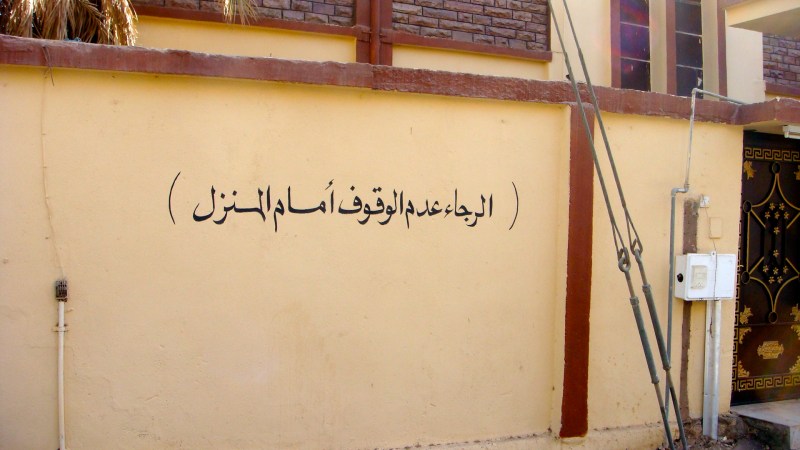 ( الرجاء عدم الوقوف أمام المنزل )